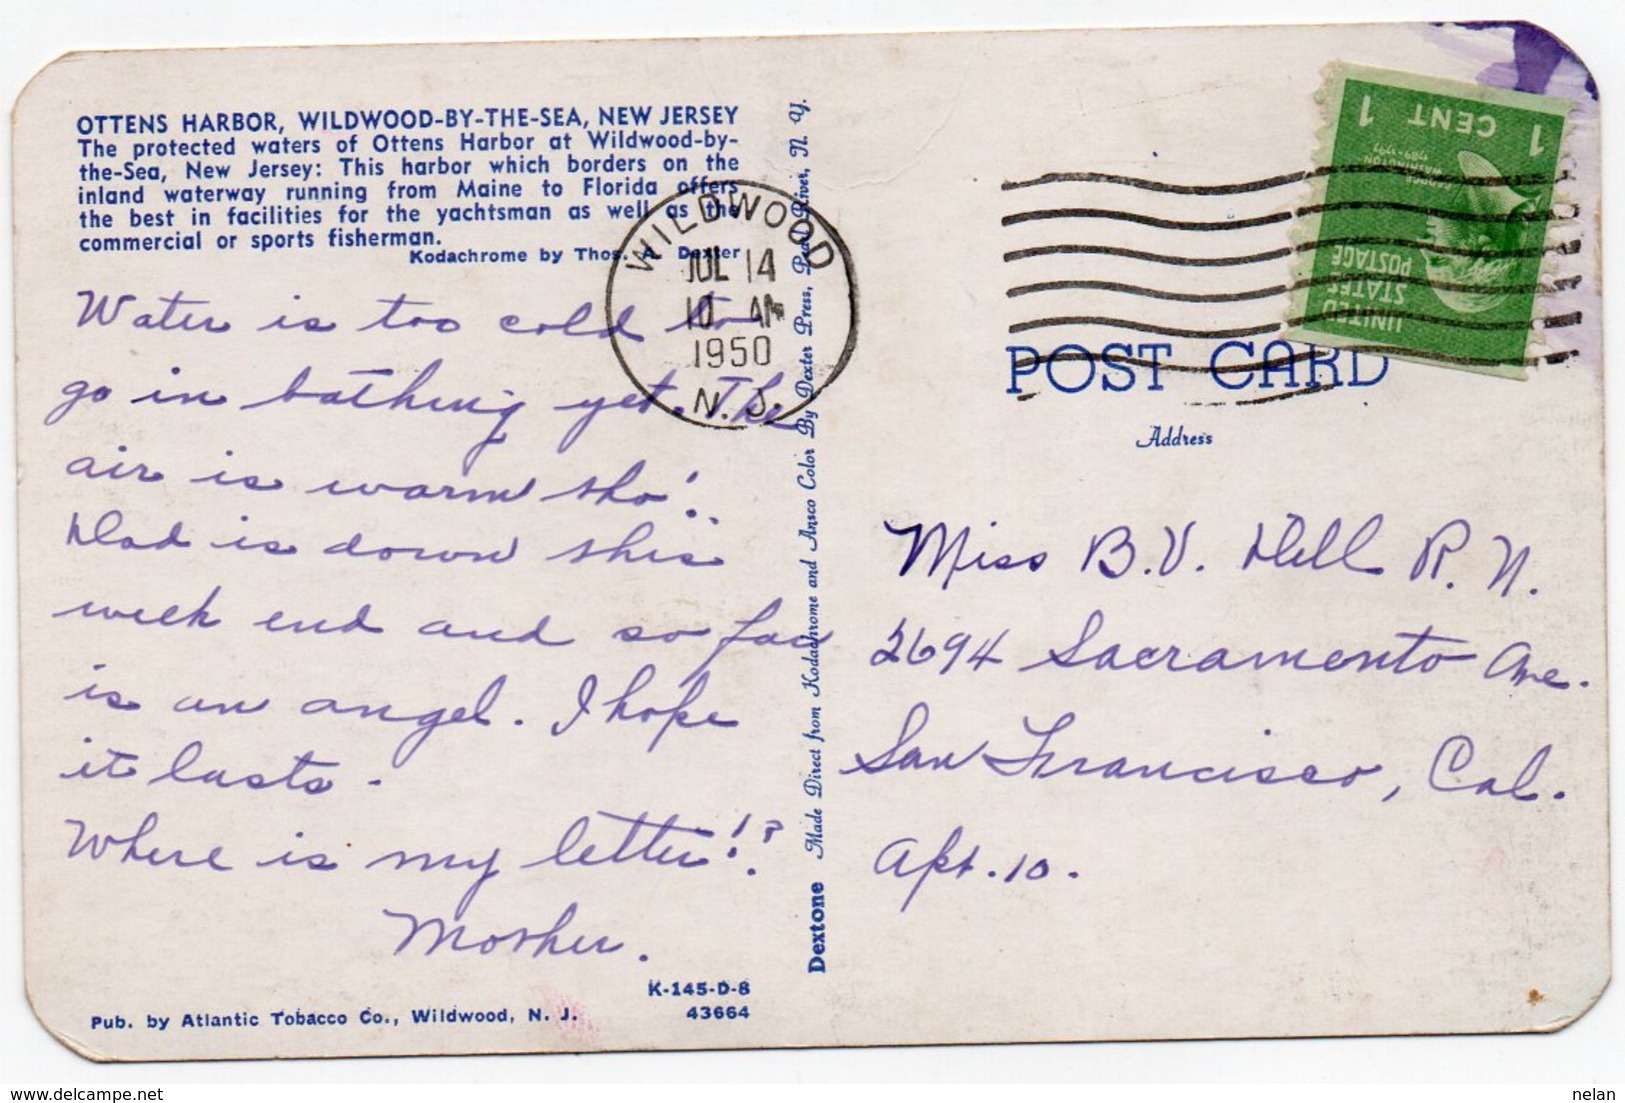 OTTENS HARBOR, WILDWOOD-BY-THE-SEA, NEW JERSEY
The protected waters of Ottens Harbor at Wildwood-by-
the-Sea, New Jersey: This harbor which borders on the
inland waterway running from Maine to Florida offers
the best in facilities for the yachtsman as well as the
commercial or sports fisherman.
Kodachrome by Thos. A. Dexter
WILDWOOD
JUL 14
10 AM
1950
N. J.
Water is too cold to
go in bathing yet. The
air is warm tho'.
Dad is down this
week end and so far
is an angel. I hope
it lasts.
Where is my letter!?
Mother.
K-145-D-8
43664
Pub. by Atlantic Tobacco Co., Wildwood, N. J.
Dextone Made Direct from Kodachrome and Ansco Color By Dexter Press, Pearl River, N. Y.
1 CENT 1
GEORGE WASHINGTON
1789-1797
UNITED STATES POSTAGE
POST CARD
Address
Miss B.V. Dell R.N.
2694 Sacramento Ave.
San Francisco, Cal.
Apt. 10.
nelan